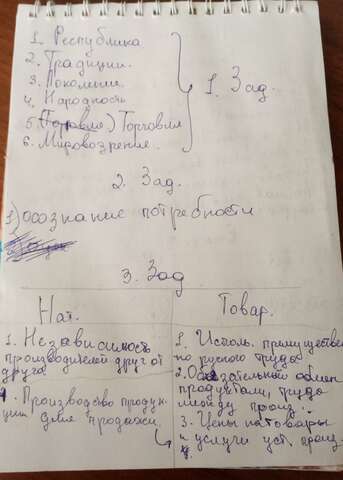 1. Республика
2. Традиции.
3. Локоноше.
4. Народность
5. (Торовле) Торговля
6. Мировозрение.
1. Зад.
2. Зад.
1) осознание потребности
3. Зад
Нат.
Товар.
1. Независимость
производителей друг от
друга
4. Производство продук-
ции для продажи.
1. Исполь. примуществен
но ручного труда
2. Обязательный обмен
продуктами, труда
между произ.
3. Цены на товары
и услуги уст. произ.
4.